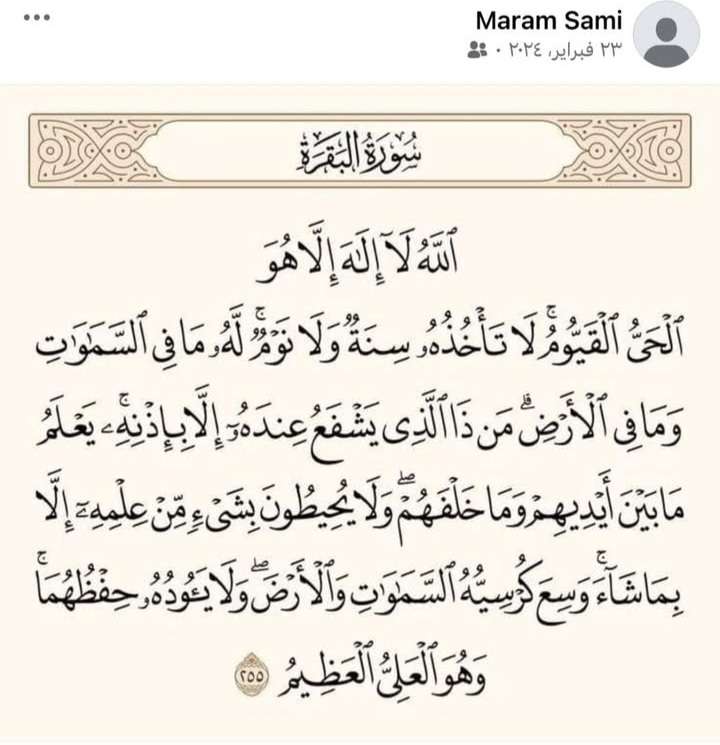 Maram Sami
٢٣ فبراير، ٢٠٢٤ ·
سُورَةُ البَقَرَةِ
ٱللَّهُ لَآ إِلَٰهَ إِلَّا هُوَ
ٱلْحَىُّ ٱلْقَيُّومُ ۚ لَا تَأْخُذُهُۥ سِنَةٌ وَلَا نَوْمٌ ۚ لَّهُۥ مَا فِى ٱلسَّمَٰوَٰتِ
وَمَا فِى ٱلْأَرْضِ ۗ مَن ذَا ٱلَّذِى يَشْفَعُ عِندَهُۥٓ إِلَّا بِإِذْنِهِۦ ۚ يَعْلَمُ
مَا بَيْنَ أَيْدِيهِمْ وَمَا خَلْفَهُمْ ۖ وَلَا يُحِيطُونَ بِشَىْءٍ مِّنْ عِلْمِهِۦٓ إِلَّا
بِمَا شَآءَ ۚ وَسِعَ كُرْسِيُّهُ ٱلسَّمَٰوَٰتِ وَٱلْأَرْضَ ۖ وَلَا يَـُٔودُهُۥ حِفْظُهُمَا ۚ
وَهُوَ ٱلْعَلِىُّ ٱلْعَظِيمُ ٢٥٥